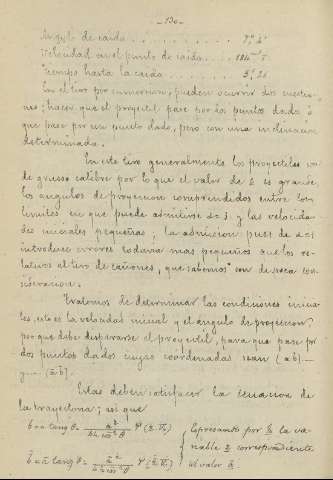 - 130 -
Angulo de caida . . . . . . . . . . . . 7° 6'
Velocidad en el punto de caida . . . . 184
Tiempo hasta la caida . . . . . . . . 3", 26
En el tiro por inmersion, pueden ocurrir dos cuestio-
nes; hacer que el proyectil pase por dos puntos dados ó
que pase por un punto dado, pero con una inclinacion
determinada.
En este tiro generalmente los proyectiles son
de grueso calibre por lo que el valor de es grande,
los angulos de proyeccion comprendidos entre los
limites en que puede admitirse α = 1 y las velocida-
des iniciales pequeñas; la admision pues de α = 1
introduce errores todavia mas pequeños que los re-
lativos al tiro de cañones, que sabemos son de poca con-
sideracion.
Tratemos de determinar las condiciones inicia-
les, esto es la velocidad inicial y el angulo de proyeccion
por que debe dispararse el proyectil, para que pase por
dos puntos dados cuyas coordenadas sean (a b) —
y — (ā b̄).
Estas deben satisfacer la ecuacion de
la trayectoria; asi que
b = a tang θ - a² / 2h cos² θ Ψ (z V₀) Expresando por la va-
riable z correspondiente
b̄ = ā tang θ - ā² / 2h cos² θ Ψ (z̄ V₀) al valor ā.